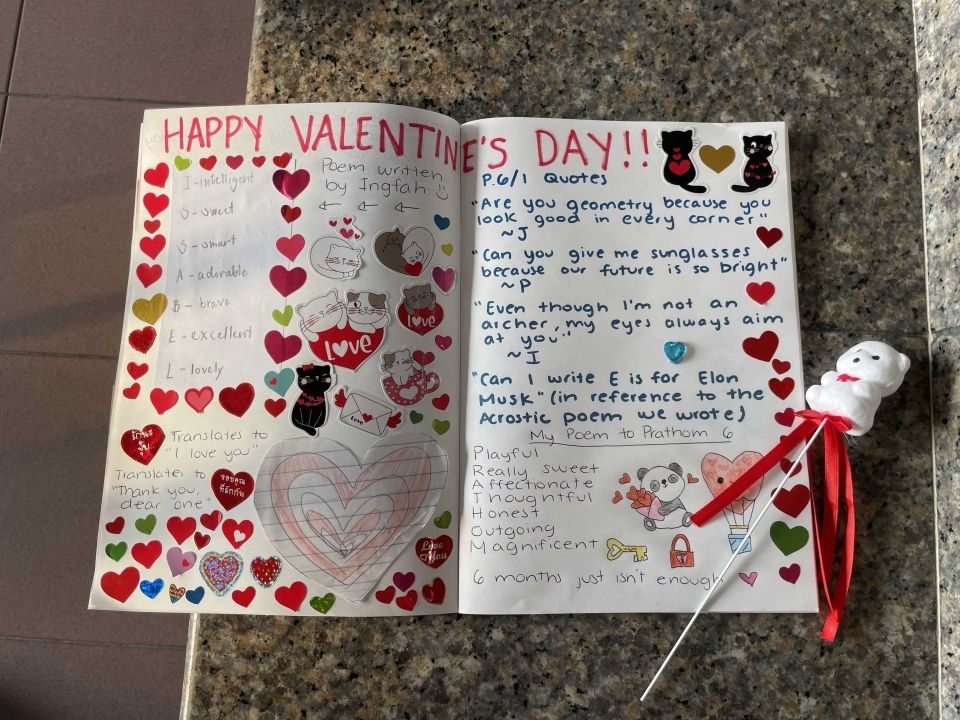 HAPPY VALENTINE'S DAY!!
I - intelligent
S - sweet
S - smart
A - adorable
B - brave
E - excellent
L - lovely
Poem written
by Ingfah :)
LOVE
LOVE
LOVE
Translates to
"I love you"
ขอบคุณ
ที่รักกัน
Translates to
"Thank you,
dear one"
Love
You
P.6/1 Quotes
"Are you geometry because you
look good in every corner"
~J
"Can you give me sunglasses
because our future is so bright"
~P
"Even though I'm not an
archer, my eyes always aim
at you"
~I
"Can I write E is for Elon
Musk" (in reference to the
Acrostic poem we wrote)
My Poem to Prathom 6
Playful
Really sweet
Affectionate
Thoughtful
Honest
Outgoing
Magnificent
6 months just isn't enough